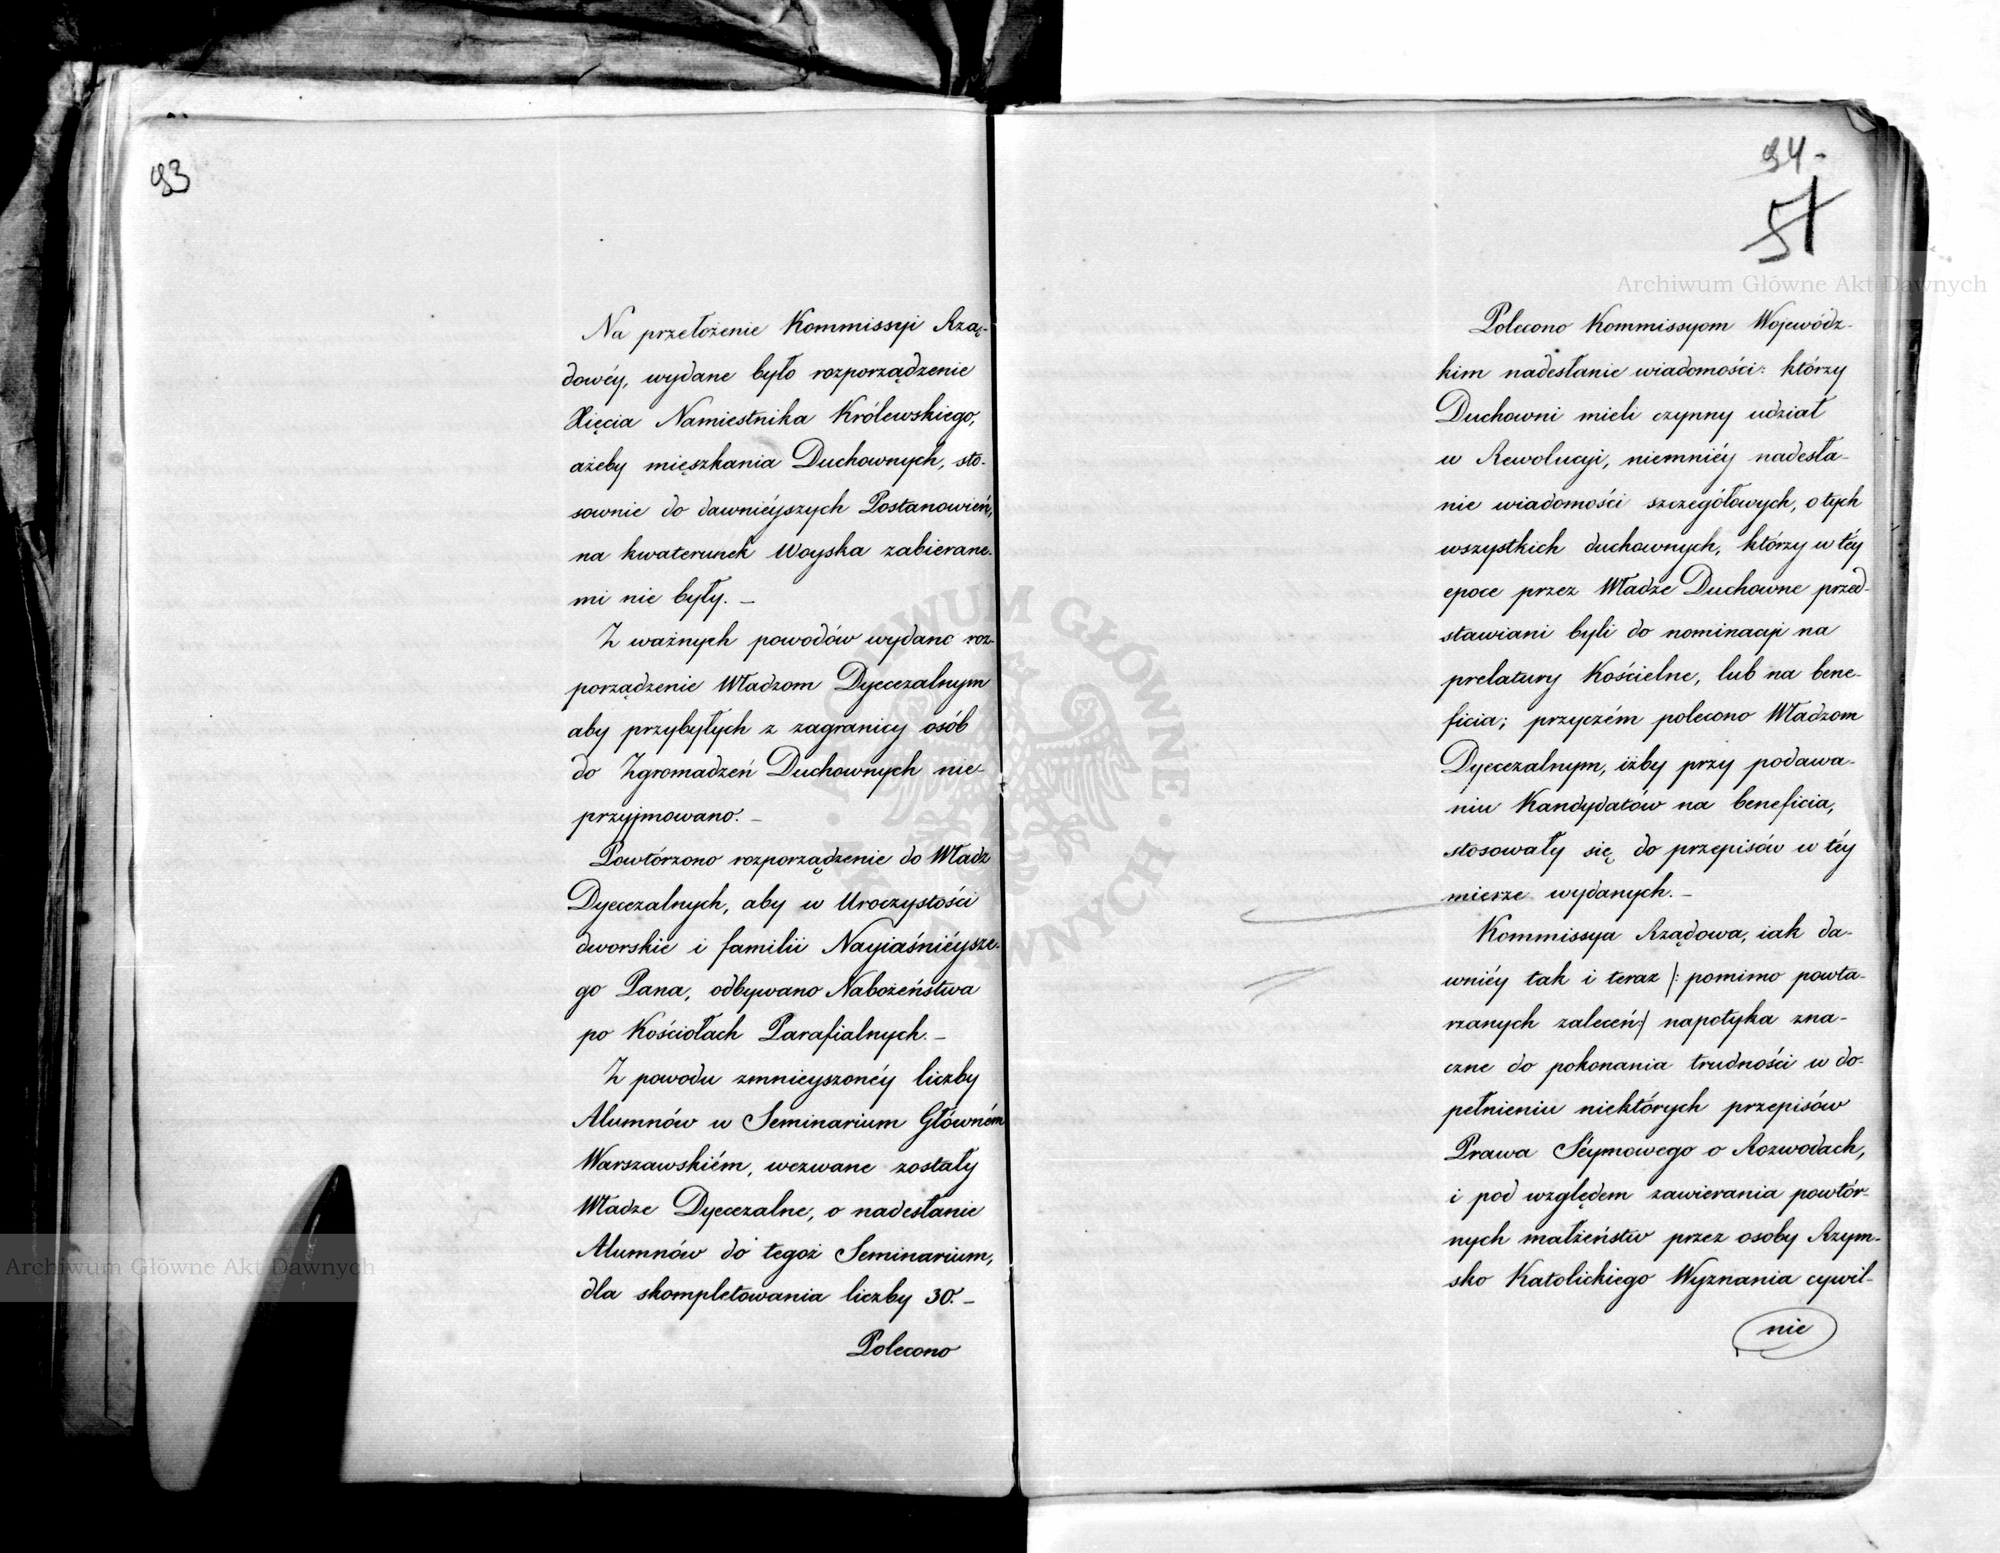 93
Na przełożenie Kommissyi Rzą-
dowéy, wydane było rozporządzenie
Xięcia Namiestnika Królewskiego,
ażeby mięszkania Duchownych, sto-
sownie do dawniéyszych Postanowień,
na kwaterunek Woyska zabierane-
mi nie były. _
Z ważnych powodów wydano roz-
porządzenie Władzom Dyecezalnym
aby przybyłych z zagranicy osób
do Zgromadzeń Duchownych nie-
przyjmowano. _
Powtórzono rozporządzenie do Władz
Dyecezalnych, aby w Uroczystości
dworskie i familii Nayiaśniéysze-
go Pana, odbywano Nabożeństwa
po Kościołach Parafialnych. _
Z powodu zmnieyszonéy liczby
Alumnów w Seminarium Główném
Warszawskiém, wezwane zostały
Władze Dyecezalne, o nadesłanie
Alumnów do tegoż Seminarium,
dla skompletowania liczby 30. _
Polecono
94-
51
Polecono Kommissyom Wojewódz-
kim nadesłanie wiadomości: którzy
Duchowni mieli czynny udział
w Rewolucyi, niemniéy nadesła-
nie wiadomości szczegółowych, o tych
wszystkich duchownych, którzy w téy
epoce przez Władze Duchowne przed-
stawiani byli do nominacyi na
prelatury Kościelne, lub na bene-
ficia; przyczém polecono Władzom
Dyecezalnym, iżby przy podawa-
niu Kandydatów na beneficia,
stosowały się do przepisów w téy
mierze wydanych. _
Kommissya Rządowa, iak da-
wniéy tak i teraz /: pomimo powta-
rzanych zaleceń:/ napotyka zna-
czne do pokonania trudności w do-
pełnieniu niektórych przepisów
Prawa Séymowego o Rozwodach,
i pod względem zawierania powtór-
nych małżeństw przez osoby Rzym-
sko Katolickiego Wyznania cywil-
nie
Archiwum Główne Akt Dawnych
Archiwum Główne Akt Dawnych
ARCHIWUM GŁÓWNE AKT DAWNYCH